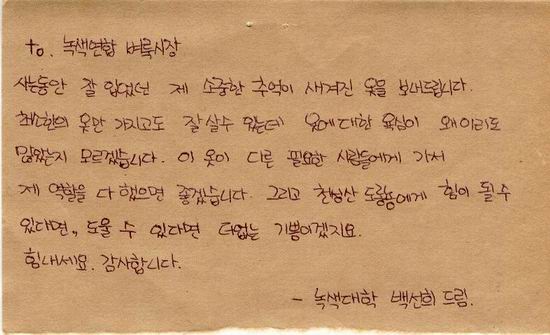 to. 녹색연합 벼룩시장
사는동안 잘 입었던 제 소중한 추억이 새겨진 옷을 보내드립니다.
최소한의 옷만 가지고도 잘 살수 있는데 옷에 대한 욕심이 왜 이리도
많았는지 모르겠습니다. 이 옷이 다른 필요한 사람들에게 가서
제 역할을 다 했으면 좋겠습니다. 그리고 천성산 도롱뇽에게 힘이 될 수
있다면, 도울 수 있다면 더없는 기쁨이겠지요.
힘내세요. 감사합니다.
- 녹색대학 백선희 드림.